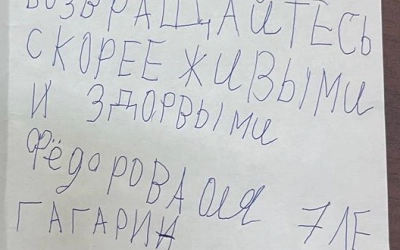 ВОЗВРАЩАЙТЕСЬ
СКОРЕЕ ЖИВЫМИ
И ЗДОРВЫМИ
ФЁДОРОВА ОЛЯ
ГАГАРИН 7 ЛЕ